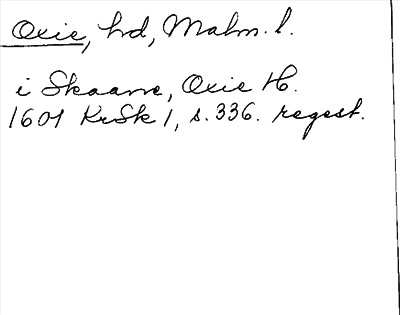 Oxie, hd, Malm. l.
i Skaane, Oxie H.
1601 KrSk 1, s. 336. regest.